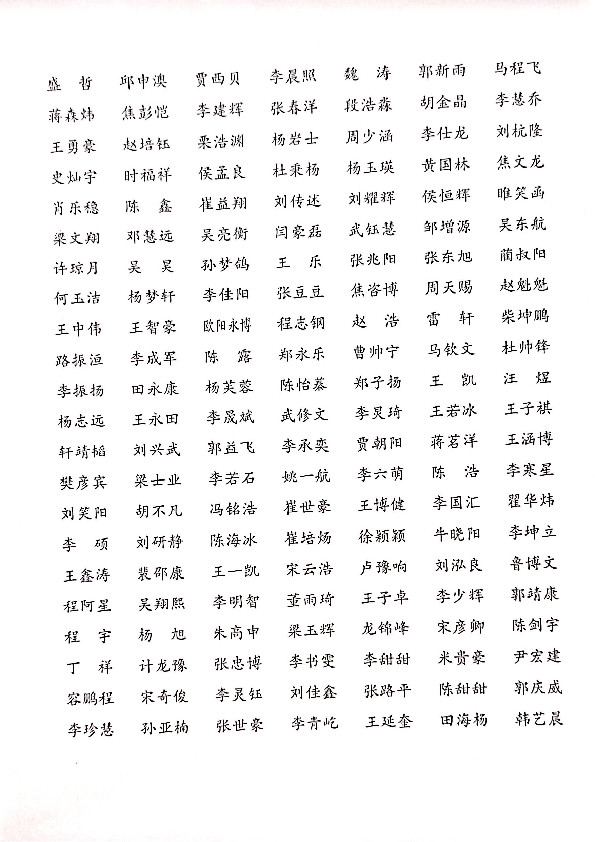 盛　哲　邱申澳　贾西贝　李晨照　魏　涛　郭新雨　马程飞
蒋森炜　焦彭恺　李建辉　张春洋　段浩淼　胡金晶　李慧乔
王勇豪　赵培钰　栗浩渊　杨岩士　周少涵　李仕龙　刘杭隆
史灿宇　时福祥　侯孟良　杜秉杨　杨玉瑛　黄国林　焦文龙
肖乐稳　陈　鑫　崔益翔　刘传述　刘耀辉　侯恒辉　睢笑函
梁文翔　邓慧远　吴亮衡　闫豪磊　武钰慧　邹增源　吴东航
许琼月　吴　昊　孙梦鸽　王　乐　张兆阳　张东旭　蔺叔阳
何玉洁　杨梦轩　李佳阳　张豆豆　焦咨博　周天赐　赵魁魁
王中伟　王智豪　欧阳永博　程志钢　赵　浩　雷　轩　柴坤鹏
路振洹　李成军　陈　露　郑永乐　曹帅宁　马钦文　杜帅锋
李振扬　田永康　杨芙蓉　陈怡蓁　郑子扬　王　凯　汪　煜
杨志远　王永田　李晟斌　武修文　李炅琦　王若冰　王子祺
轩靖韬　刘兴武　郭益飞　李承奕　贾朝阳　蒋茗洋　王涵博
樊彦宾　梁士业　李若石　姚一航　李六萌　陈　浩　李寒星
刘笑阳　胡不凡　冯铭浩　崔世豪　王博健　李国汇　翟华炜
李　硕　刘研静　陈海冰　崔培炀　徐颖颖　牛晓阳　李坤立
王鑫涛　裴邵康　王一凯　宋云浩　卢豫响　刘泓良　鲁博文
程阿星　吴翔熙　李明智　董雨琦　王子卓　李少辉　郭靖康
程　宇　杨　旭　朱高申　梁玉辉　龙锦峰　宋彦卿　陈剑宇
丁　祥　计龙豫　张忠博　李书雯　李甜甜　米贵豪　尹宏建
容鹏程　宋奇俊　李灵钰　刘佳鑫　张路平　陈甜甜　郭庆威
李珍慧　孙亚楠　张世豪　李青屹　王延奎　田海杨　韩艺晨